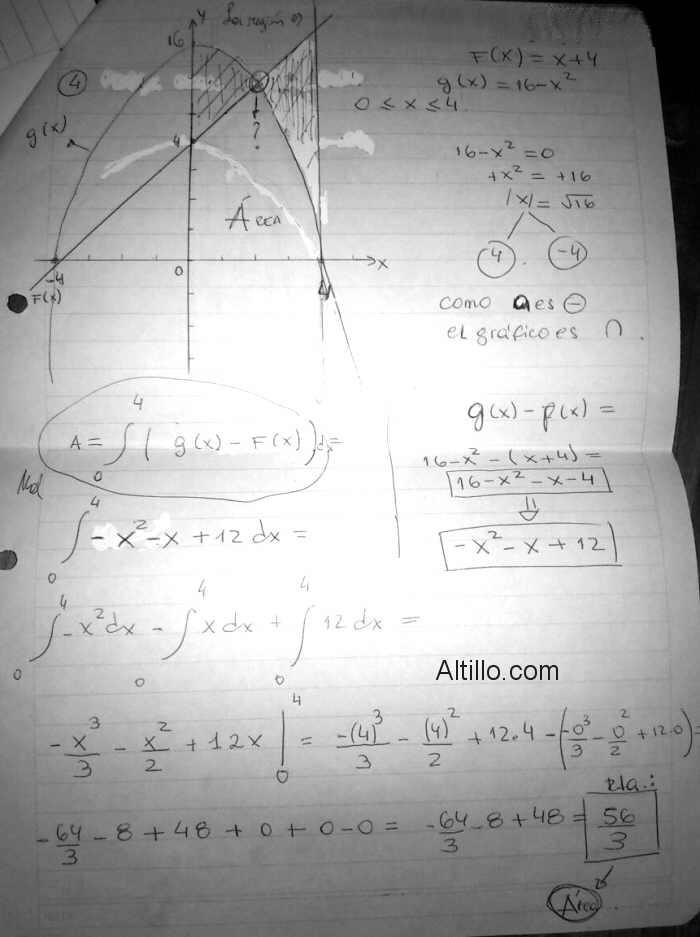 y La región es
16
④
g(x)
4
?
ÁREA
-4 0 4 x
F(x)
F(x) = x+4
g(x) = 16-x²
0 ≤ x ≤ 4
16-x² = 0
+x² = +16
|x| = √16
4 . -4
como a es ⊖
el gráfico es ∩ .
A = ∫₀⁴ ( g(x) - F(x) ) dx =
g(x) - p(x) =
16-x² - (x+4) =
16-x² - x - 4
⇓
-x² - x + 12
∫₀⁴ -x² - x + 12 dx =
∫₀⁴ -x² dx - ∫₀⁴ x dx + ∫₀⁴ 12 dx =
Altillo.com
-x³/3 - x²/2 + 12x |₀⁴ = -(4)³/3 - (4)²/2 + 12.4 - (-0³/3 - 0²/2 + 12.0) =
rta.:
-64/3 - 8 + 48 + 0 + 0 - 0 = -64/3 - 8 + 48 = 56/3
Área